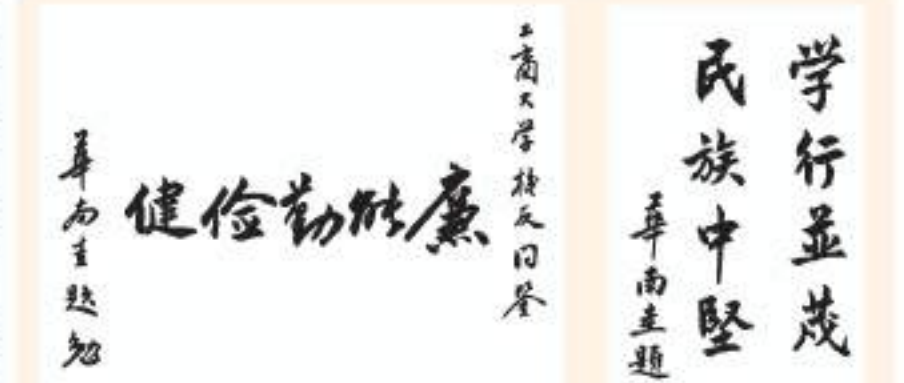 工商大学校友同鉴
廉能勤俭健
華南圭题勉
学行並茂
民族中堅
華南圭題